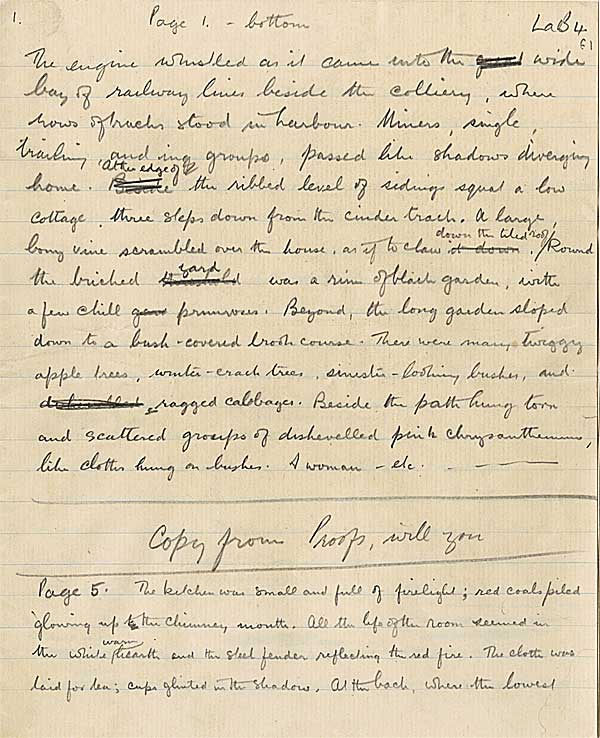 1.
Page 1. - bottom
LaB 4
The engine whistled as it came into the wide
bay of railway lines beside the colliery, where
rows of trucks stood in harbour. Miners, single,
trailing, and in groups, passed like shadows diverging
At the edge of
home. Beside the ribbed level of sidings squat a low
cottage, three steps down from the cinder track. A large,
down the tiled roof
bony vine scrambled over the house, as if to claw it down. / Round
yard
the bricked was a rim of black garden, with
a few chill primroses. Beyond, the long garden sloped
down to a bush-covered brook course. There were many twiggy
apple trees, winter-crack trees, sinister-looking bushes, and
dishevelled ragged cabbages. Beside the path hung torn
and scattered groups of dishevelled pink chrysanthemums,
like cloths hung on bushes. A woman - etc.
Copy from Proofs, will you
Page 5. The kitchen was small and full of firelight; red coals piled
glowing up the chimney mouth. All the life of the room seemed in
warm
the white hearth and the steel fender reflecting the red fire. The cloth was
laid for tea; cups glinted in the shadow. At the back, where the lowest